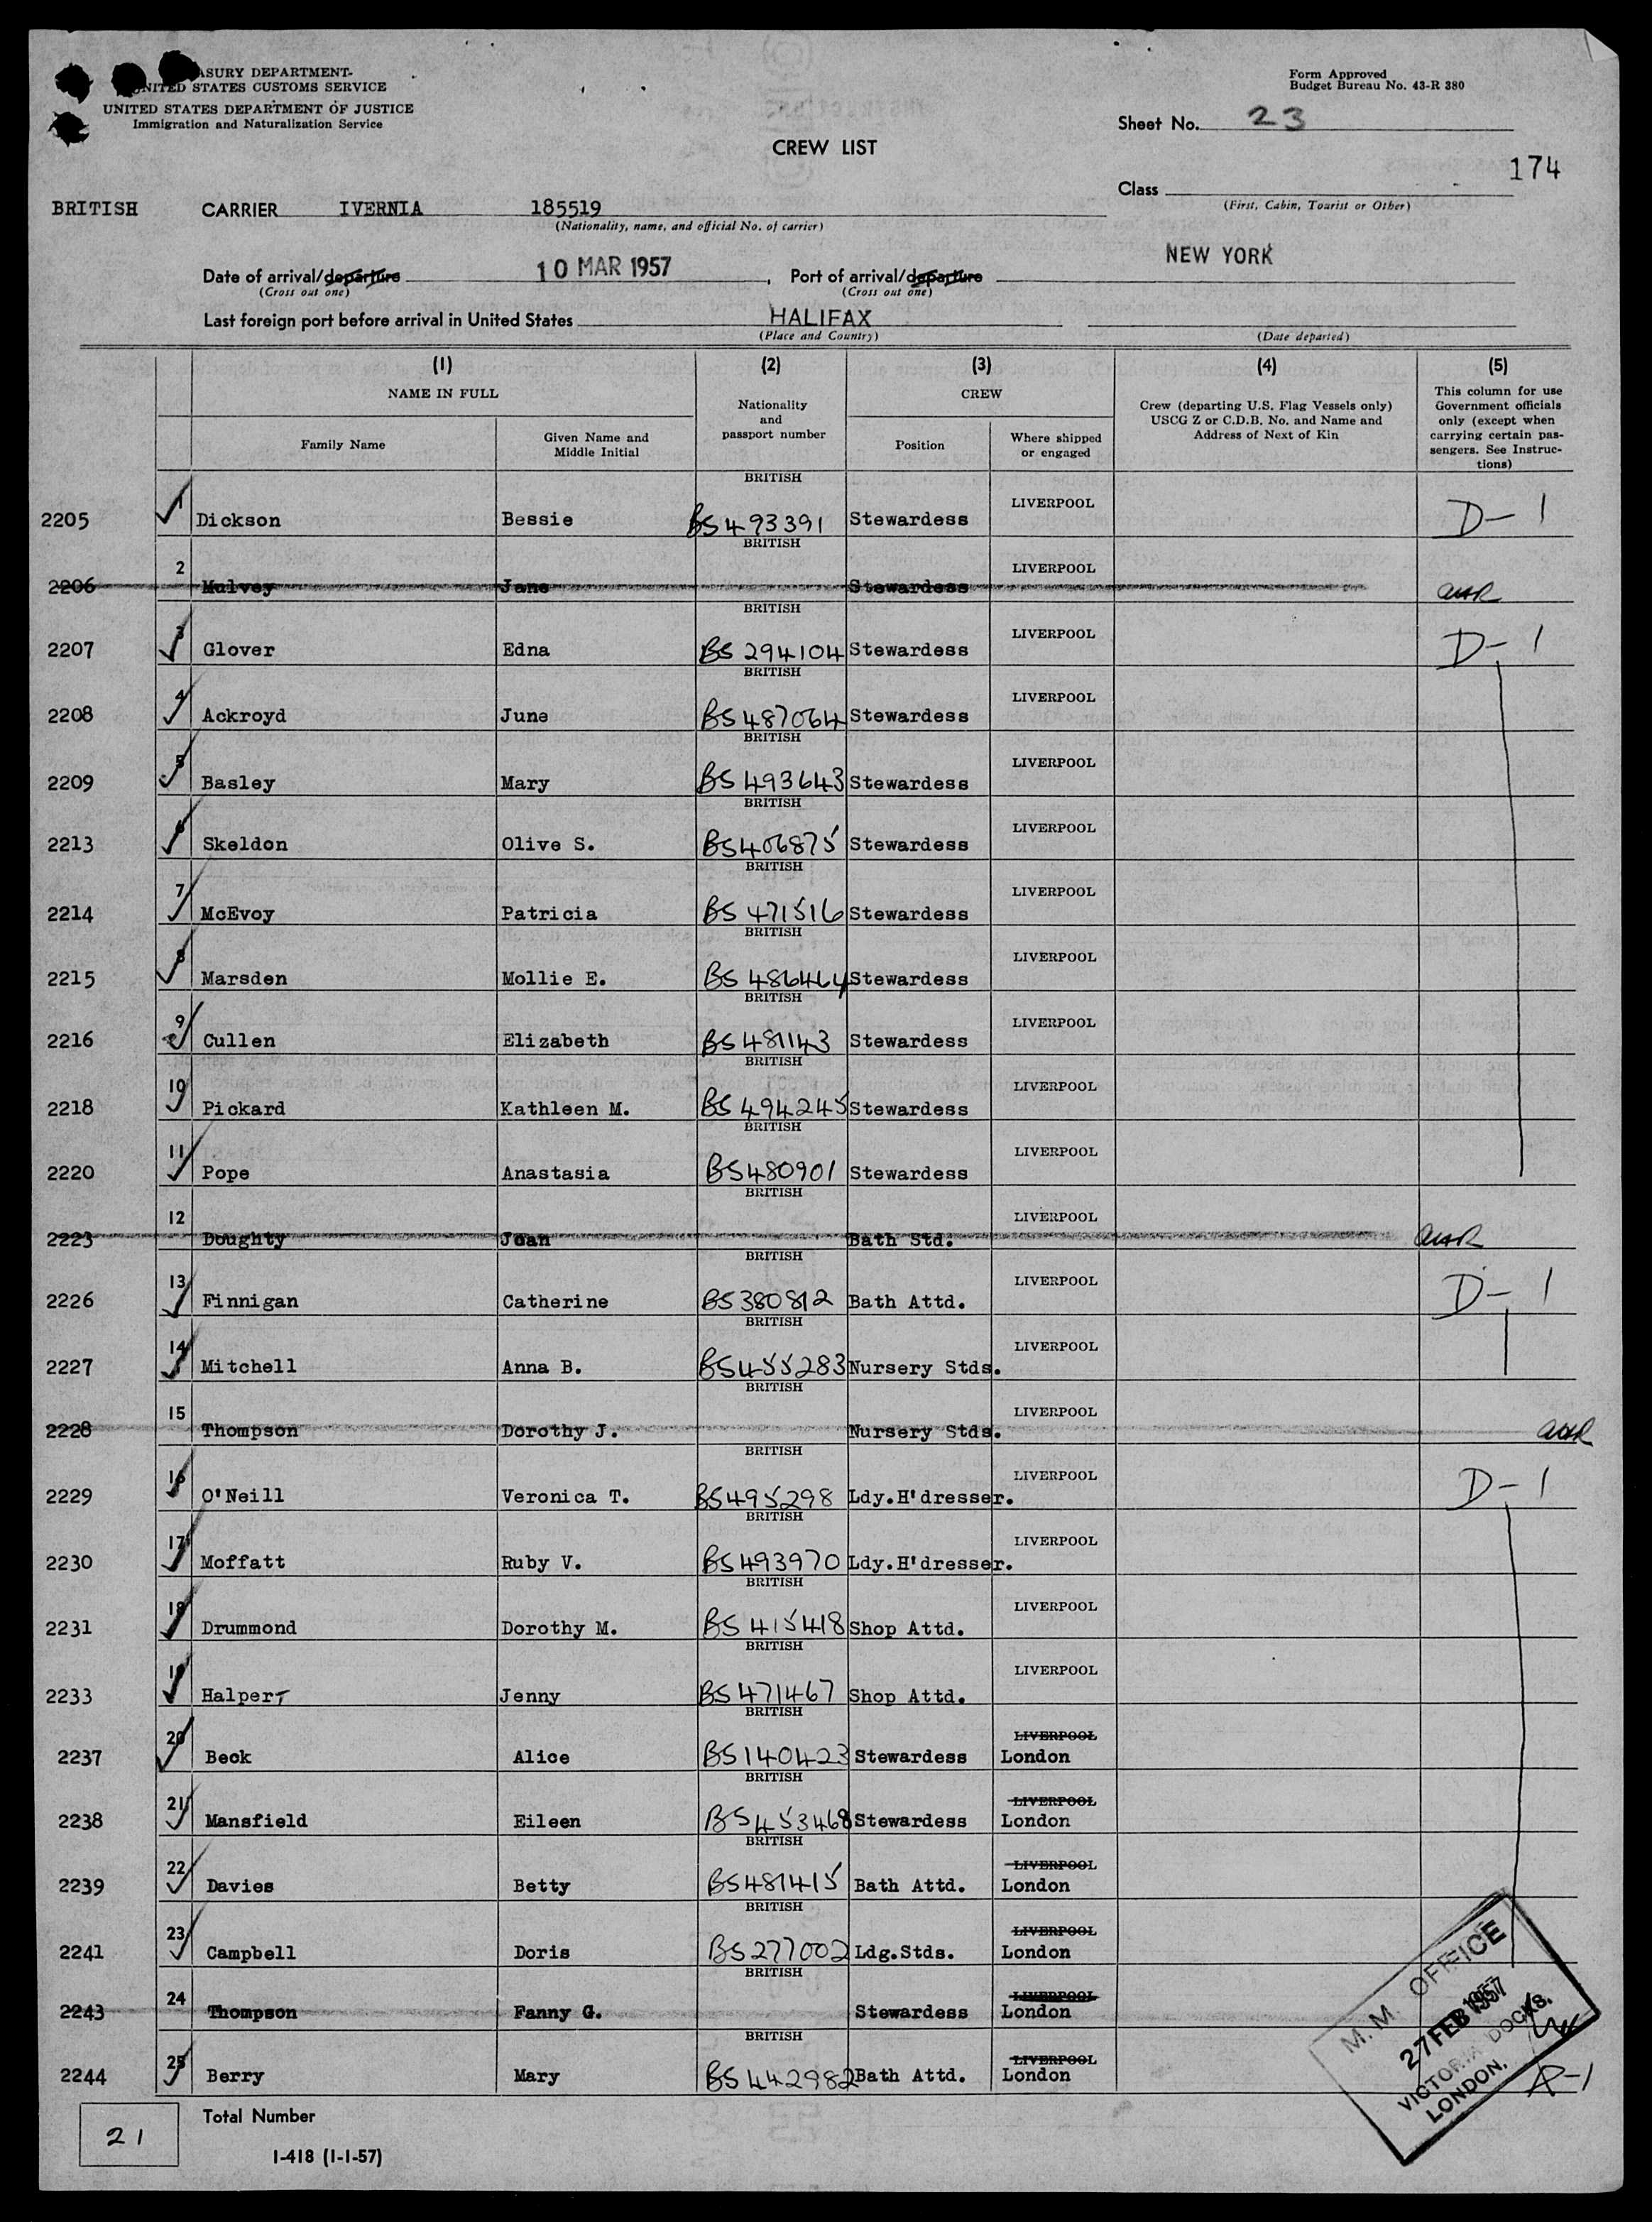 ASURY DEPARTMENT
UNITED STATES CUSTOMS SERVICE
UNITED STATES DEPARTMENT OF JUSTICE
Immigration and Naturalization Service
Form Approved
Budget Bureau No. 43-R 380
Sheet No. 23
CREW LIST
174
Class
(First, Cabin, Tourist or Other)
BRITISH CARRIER IVERNIA 185519
(Nationality, name, and official No. of carrier)
Date of arrival/departure 10 MAR 1957, Port of arrival/departure NEW YORK
(Cross out one) (Cross out one)
Last foreign port before arrival in United States HALIFAX
(Place and Country) (Date departed)
(1) (2) (3) (4) (5)
NAME IN FULL
Family Name
Given Name and
Middle Initial
Nationality
and
passport number
CREW
Position
Where shipped
or engaged
Crew (departing U.S. Flag Vessels only)
USCG Z or C.D.B. No. and Name and
Address of Next of Kin
This column for use
Government officials
only (except when
carrying certain pas-
sengers. See Instruc-
tions)
BRITISH LIVERPOOL
2205 1 Dickson Bessie BS493391 Stewardess D-1
BRITISH LIVERPOOL
2206 2 Mulvey Jane Stewardess
BRITISH LIVERPOOL
2207 3 Glover Edna BS 294104 Stewardess D-1
BRITISH LIVERPOOL
2208 4 Ackroyd June BS487064 Stewardess
BRITISH LIVERPOOL
2209 5 Basley Mary BS 493643 Stewardess
BRITISH LIVERPOOL
2213 6 Skeldon Olive S. BS406875 Stewardess
BRITISH LIVERPOOL
2214 7 McEvoy Patricia BS 471516 Stewardess
BRITISH LIVERPOOL
2215 8 Marsden Mollie E. BS 486464 Stewardess
BRITISH LIVERPOOL
2216 9 Cullen Elizabeth BS 481143 Stewardess
BRITISH LIVERPOOL
2218 10 Pickard Kathleen M. BS 494245 Stewardess
BRITISH LIVERPOOL
2220 11 Pope Anastasia BS480901 Stewardess
BRITISH LIVERPOOL
2223 12 Doughty Joan Bath Std.
BRITISH LIVERPOOL
2226 13 Finnigan Catherine BS380812 Bath Attd. D-1
BRITISH LIVERPOOL
2227 14 Mitchell Anna B. BS455283 Nursery Stds.
BRITISH LIVERPOOL
2228 15 Thompson Dorothy J. Nursery Stds.
BRITISH LIVERPOOL
2229 16 O'Neill Veronica T. BS495298 Ldy.H'dresser. D-1
BRITISH LIVERPOOL
2230 17 Moffatt Ruby V. BS493970 Ldy.H'dresser.
BRITISH LIVERPOOL
2231 18 Drummond Dorothy M. BS 415418 Shop Attd.
BRITISH LIVERPOOL
2233 19 Halpert Jenny BS471467 Shop Attd.
BRITISH LIVERPOOL
2237 20 Beck Alice BS140423 Stewardess London
BRITISH LIVERPOOL
2238 21 Mansfield Eileen BS453468 Stewardess London
BRITISH LIVERPOOL
2239 22 Davies Betty BS481415 Bath Attd. London
BRITISH LIVERPOOL
2241 23 Campbell Doris BS277002 Ldg.Stds. London
BRITISH LIVERPOOL
2243 24 Thompson Fanny G. Stewardess London
BRITISH LIVERPOOL
2244 25 Berry Mary BS442982 Bath Attd. London
M.M. OFFICE
27 FEB 1957
VICTORIA DOCKS.
LONDON.
21 Total Number
I-418 (1-1-57)